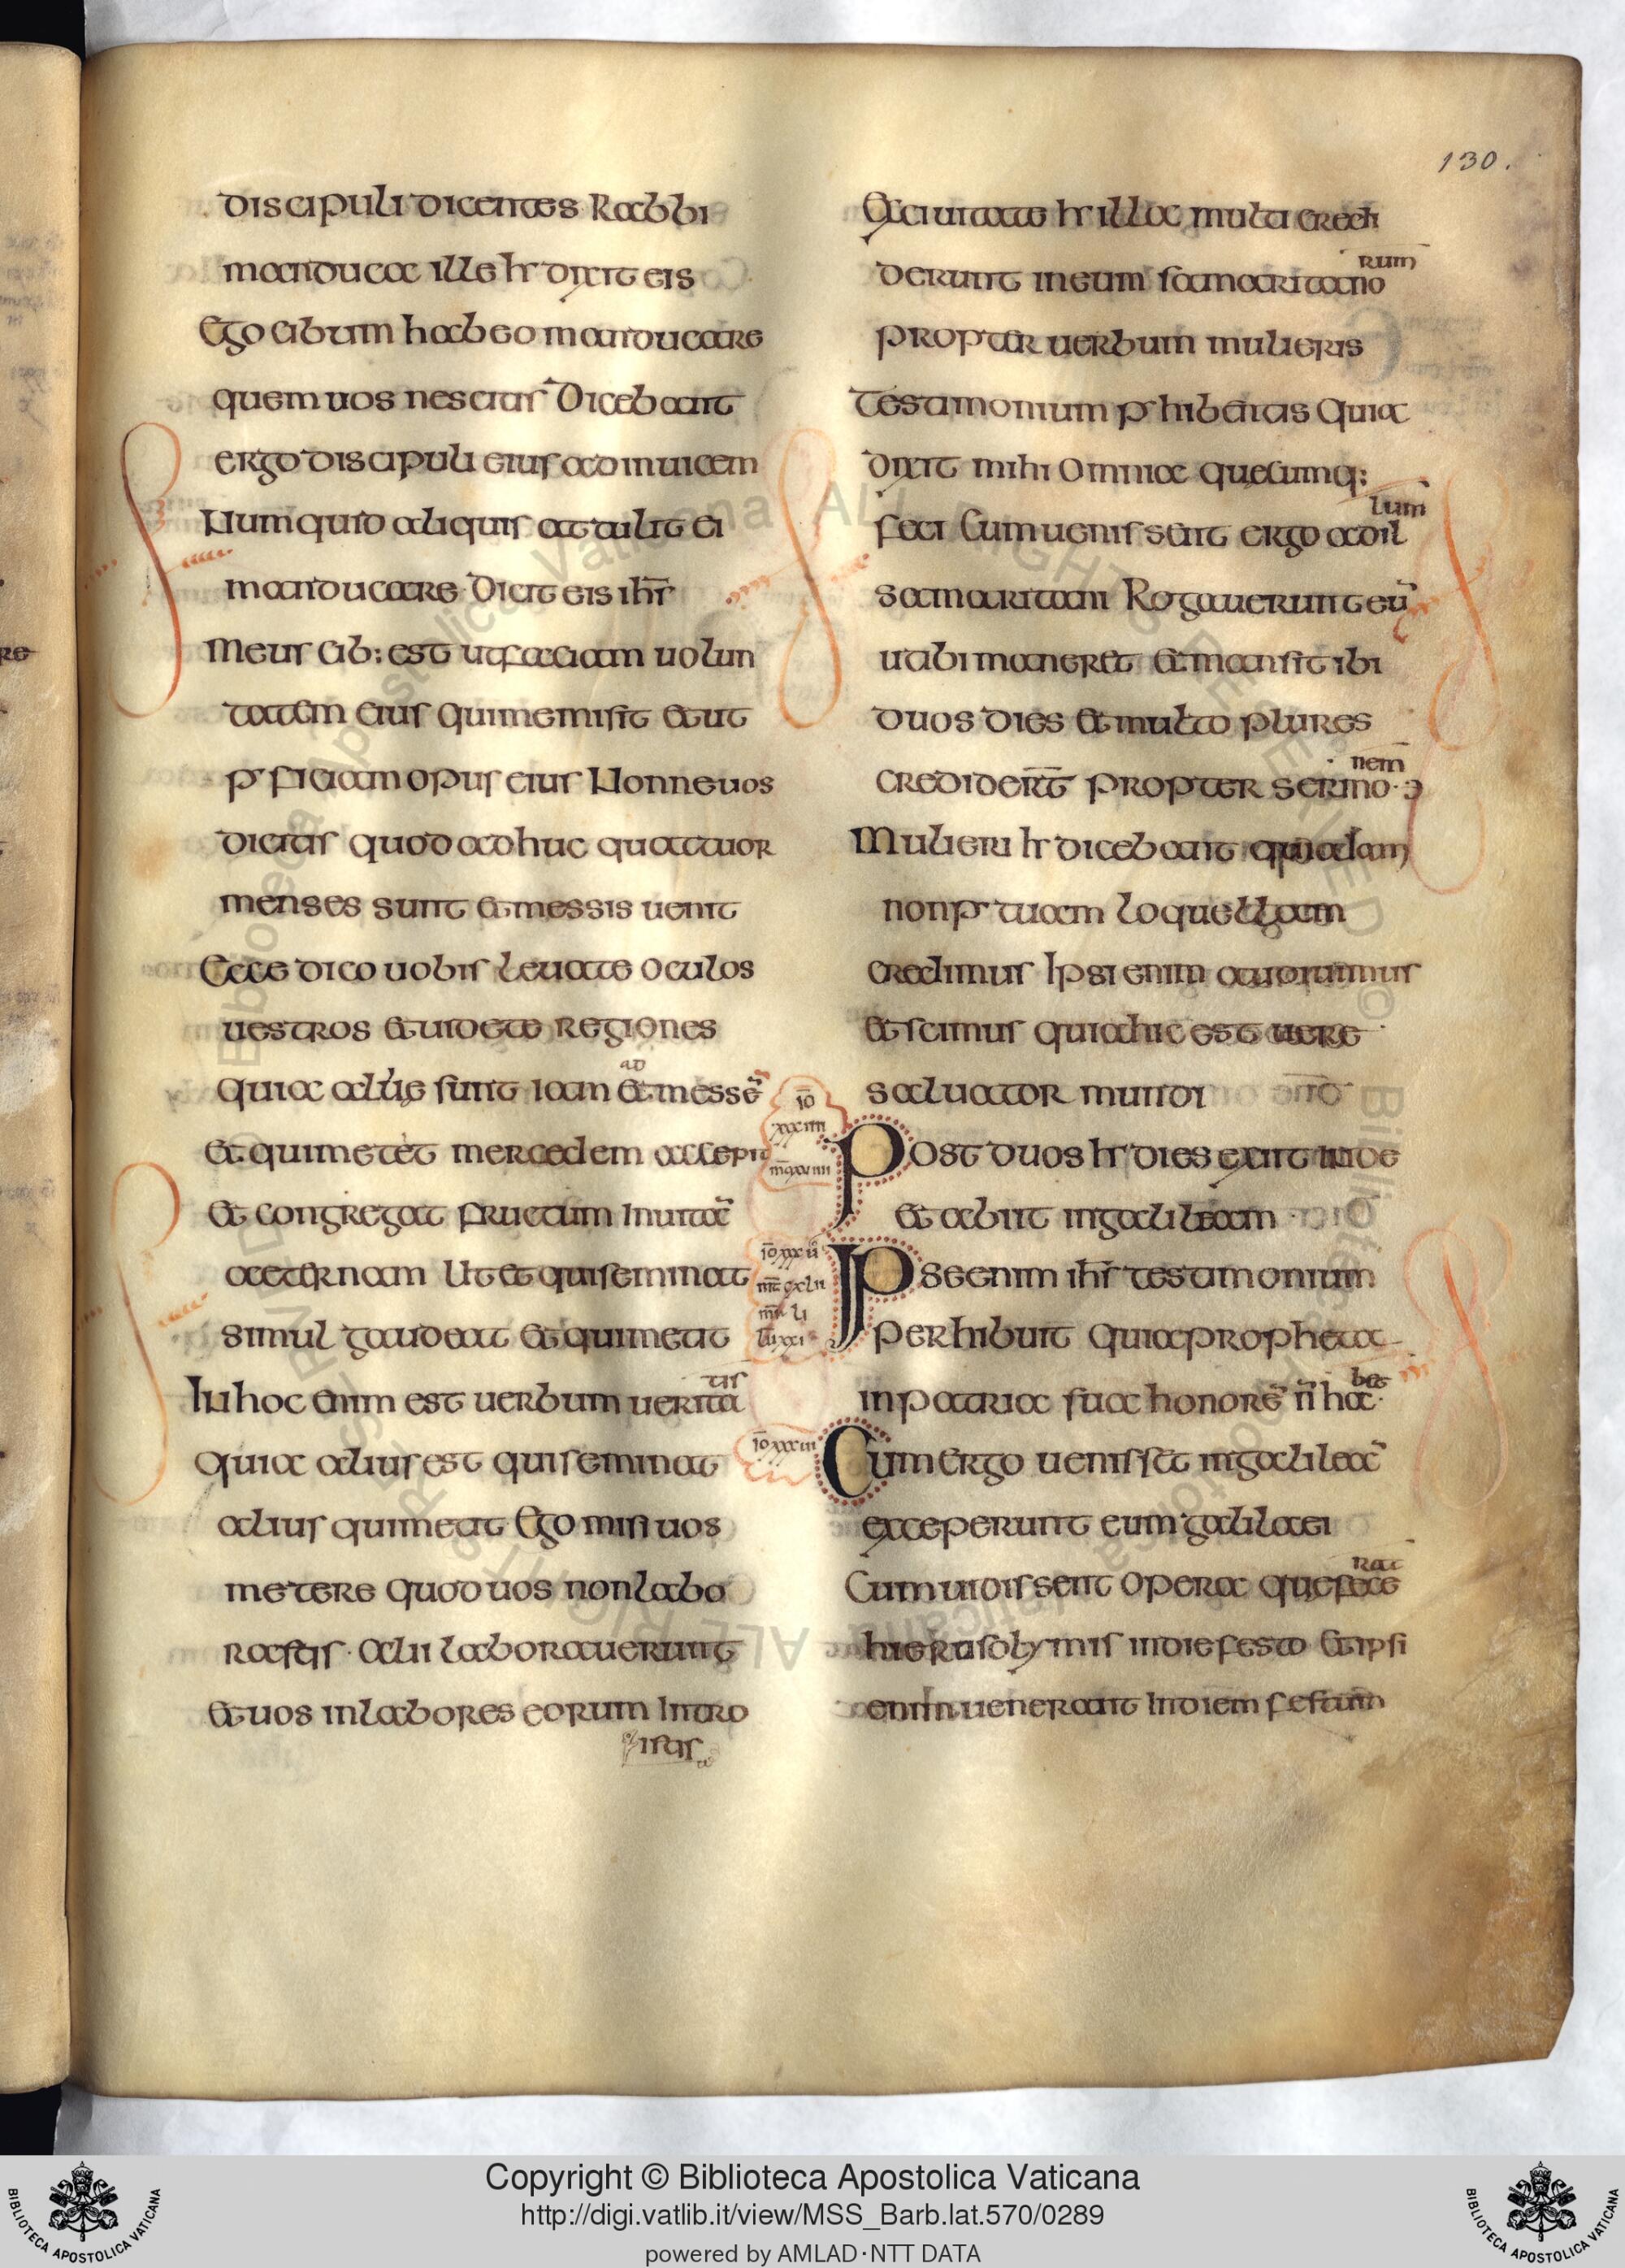 130.
discipuli dicentes Rabbi
manduca ille hr dixit eis
Ego cibum habeo manducare
quem vos nescitis Dicebant
ergo discipuli eius ad invicem
Numquid aliquis attulit ei
manducare Dicit eis ihs̄
Meus cib: est ut faciam volun
tatem eius qui me misit et ut
p̲ficiam opus eius Nonne vos
dicitis quod adhuc quattuor
menses sunt et messis venit
Ecce dico vobis levate oculos
vestros et videte regiones
ad
quia albe sunt iam et messē
et qui metet mercedem accepit
et congregat fructum In vitā
aeternam Ut et qui seminat
simul gaudeat et qui metit
tis
In hoc enim est verbum verita
quia alius est qui seminat
alius qui metit Ego misi vos
metere quod vos non labo
rastis · alii laboraverunt
et vos in labores eorum Intro
istis
Ex civitate hr illa multi credi
rum
derunt in eum samaritano
propter verbum mulieris
testimonium p̲hibentis Quia
dixit mihi omnia quecumq:
lum
feci Cum venissent ergo ad il
samaritani Rogaverunt eū
ut ibi maneret et mansit ibi
duos dies et multo plures
nem
crediderūt propter sermo·
Mulieri hr dicebant quia iam
non p̲ tuam loquellam
credimus Ipsi enim audivimus
et scimus quia hic est vere
salvator mundi
iō
xxxiiii
Post duos hr dies exiit inde
et abiit in galileam
iō xxxv
mt̄ cxlii
mr̄ li
lu xxi
Ipse enim ihs̄ testimonium
perhibuit Quia propheta
bet
in patria sua honorē n̄ ha·
iō xxxiii
Cum ergo venisset in galileā
exceperunt eum galilaei
rat
Cum vidissent opera que fece
hierusolymis in die festo et ipsi
enim venerant In diem festum
Copyright © Biblioteca Apostolica Vaticana
http://digi.vatlib.it/view/MSS_Barb.lat.570/0289
powered by AMLAD·NTT DATA
BIBLIOTECA APOSTOLICA VATICANA
BIBLIOTECA APOSTOLICA VATICANA